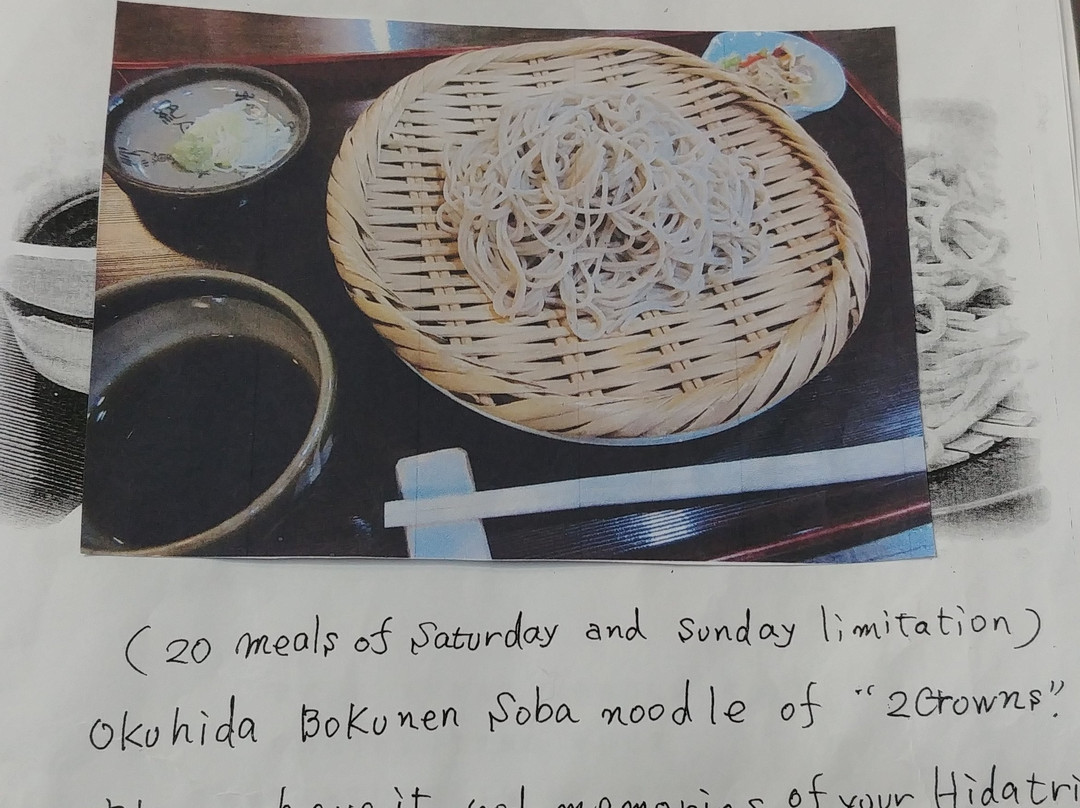 (20 meals of Saturday and Sunday limitation)
Okuhida Bokunen Soba noodle of "2Crowns".
have it memories of your Hidatri